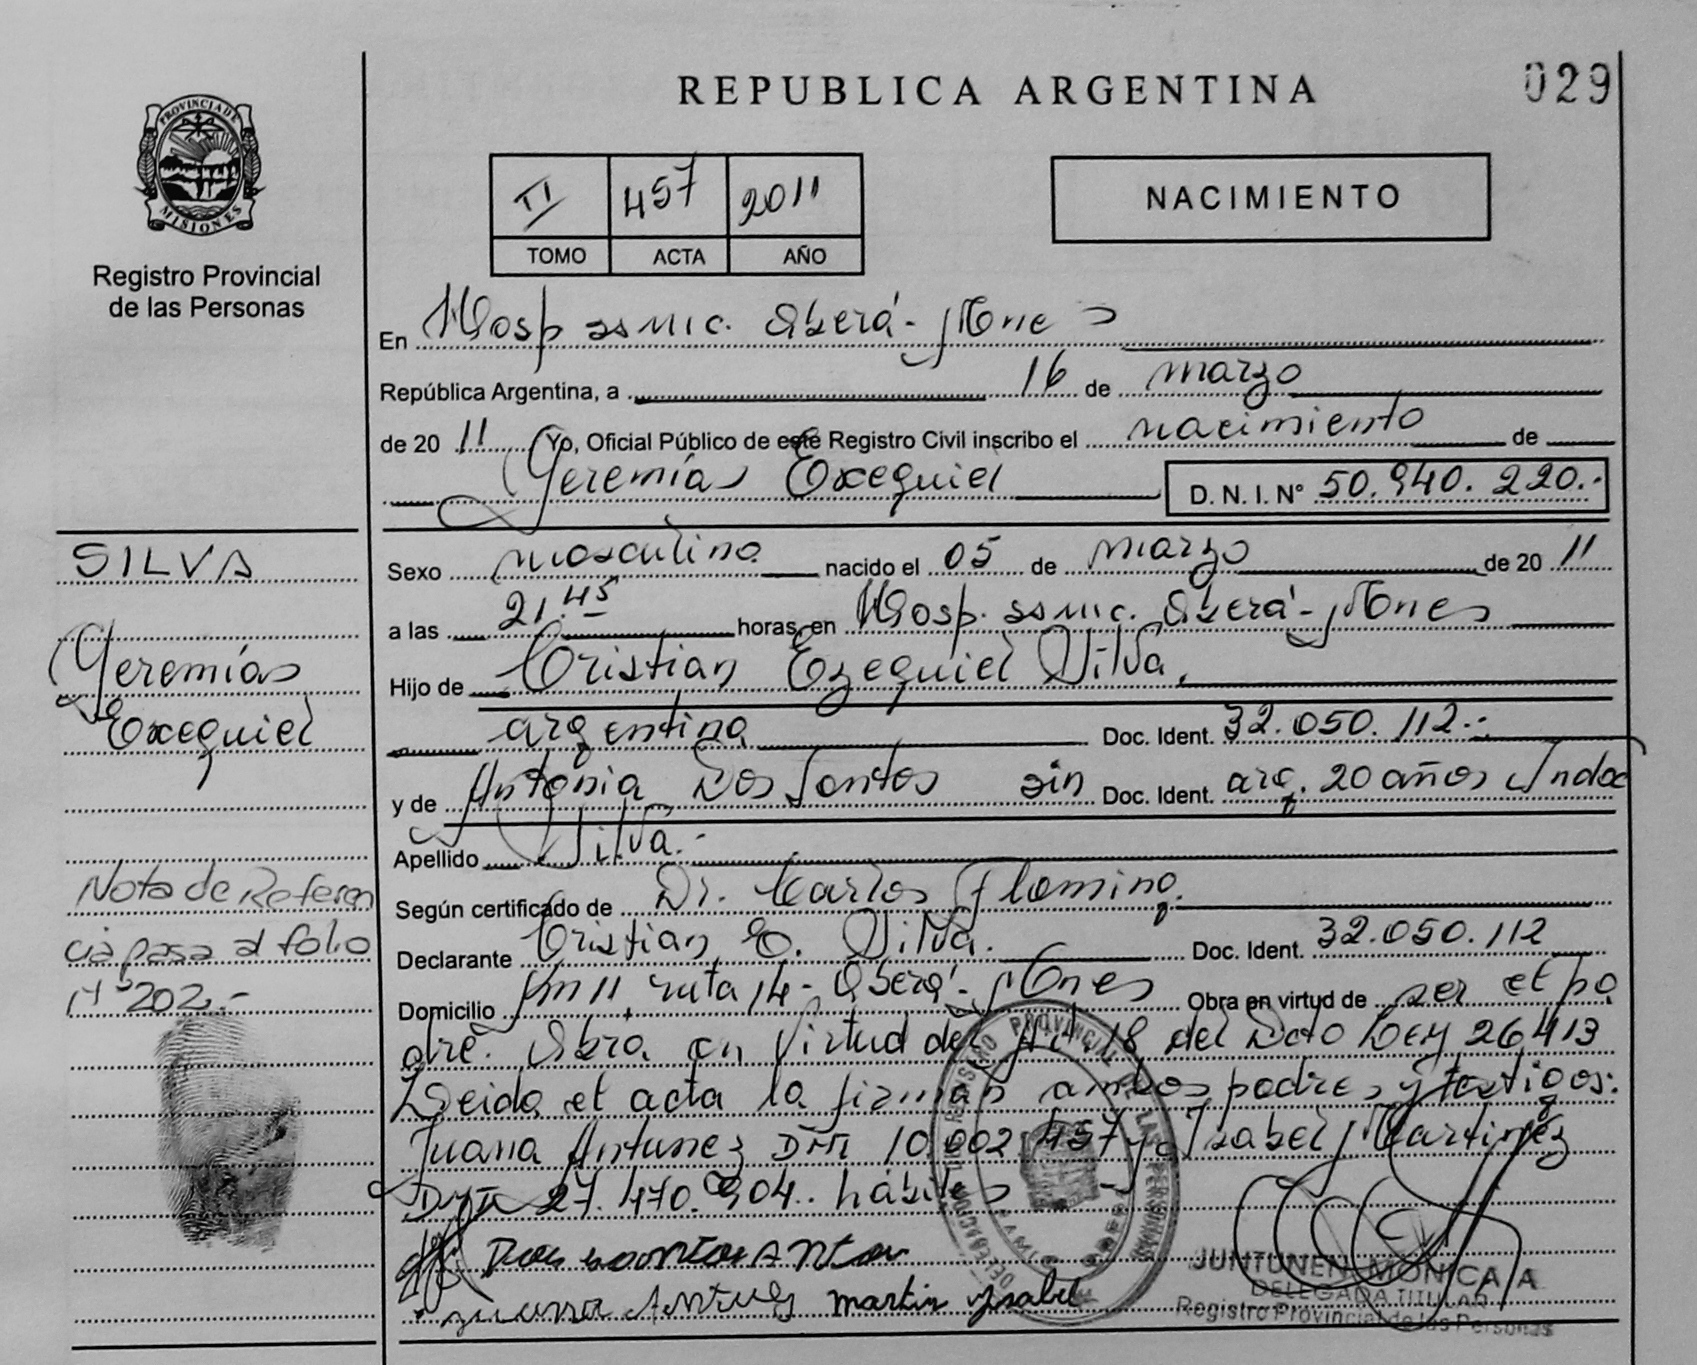 REPUBLICA ARGENTINA
029
PROVINCIA DE
MISIONES
Registro Provincial
de las Personas
II 457 2011
TOMO ACTA AÑO
NACIMIENTO
En Hosp ssmic. Oberá - Mnes
República Argentina, a 16 de marzo
de 20 11 Yo, Oficial Público de este Registro Civil inscribo el nacimiento de
Geremías Exequiel D. N. I. N° 50.940.220.-
SILVA
Geremías
Exequiel
Sexo masculino nacido el 05 de marzo de 20 11
a las 21.45 horas, en Hosp. ssmic. Oberá - Mnes
Hijo de Cristian Ezequiel Silva.
argentino Doc. Ident. 32.050.112.-
y de Antonia Dos Santos sin Doc. Ident. arg. 20 años Indoc
Apellido Silva.-
Según certificado de Dr. Carlos Floming.
Declarante Cristian E. Silva. Doc. Ident. 32.050.112
Domicilio Km 11 ruta 14 - Oberá - Mnes Obra en virtud de ser el pa
dre. Obra en virtud del Art. 18 del Dcto Ley 26413
Leida el acta la firman ambos padres y testigos:
Juana Antunez DNI 10.002.457 y Isabel Martinez
DNI 27.470.904.. hábiles
Nota de Referen
cia pasa al folio
N° 202.-
Dos santos Anto
martin ysabel
REGISTRO PROVINCIAL DE LAS PERSONAS
JUNTUNEN MONICA A
DELEGADA TITULAR
Registro Provincial de las Personas